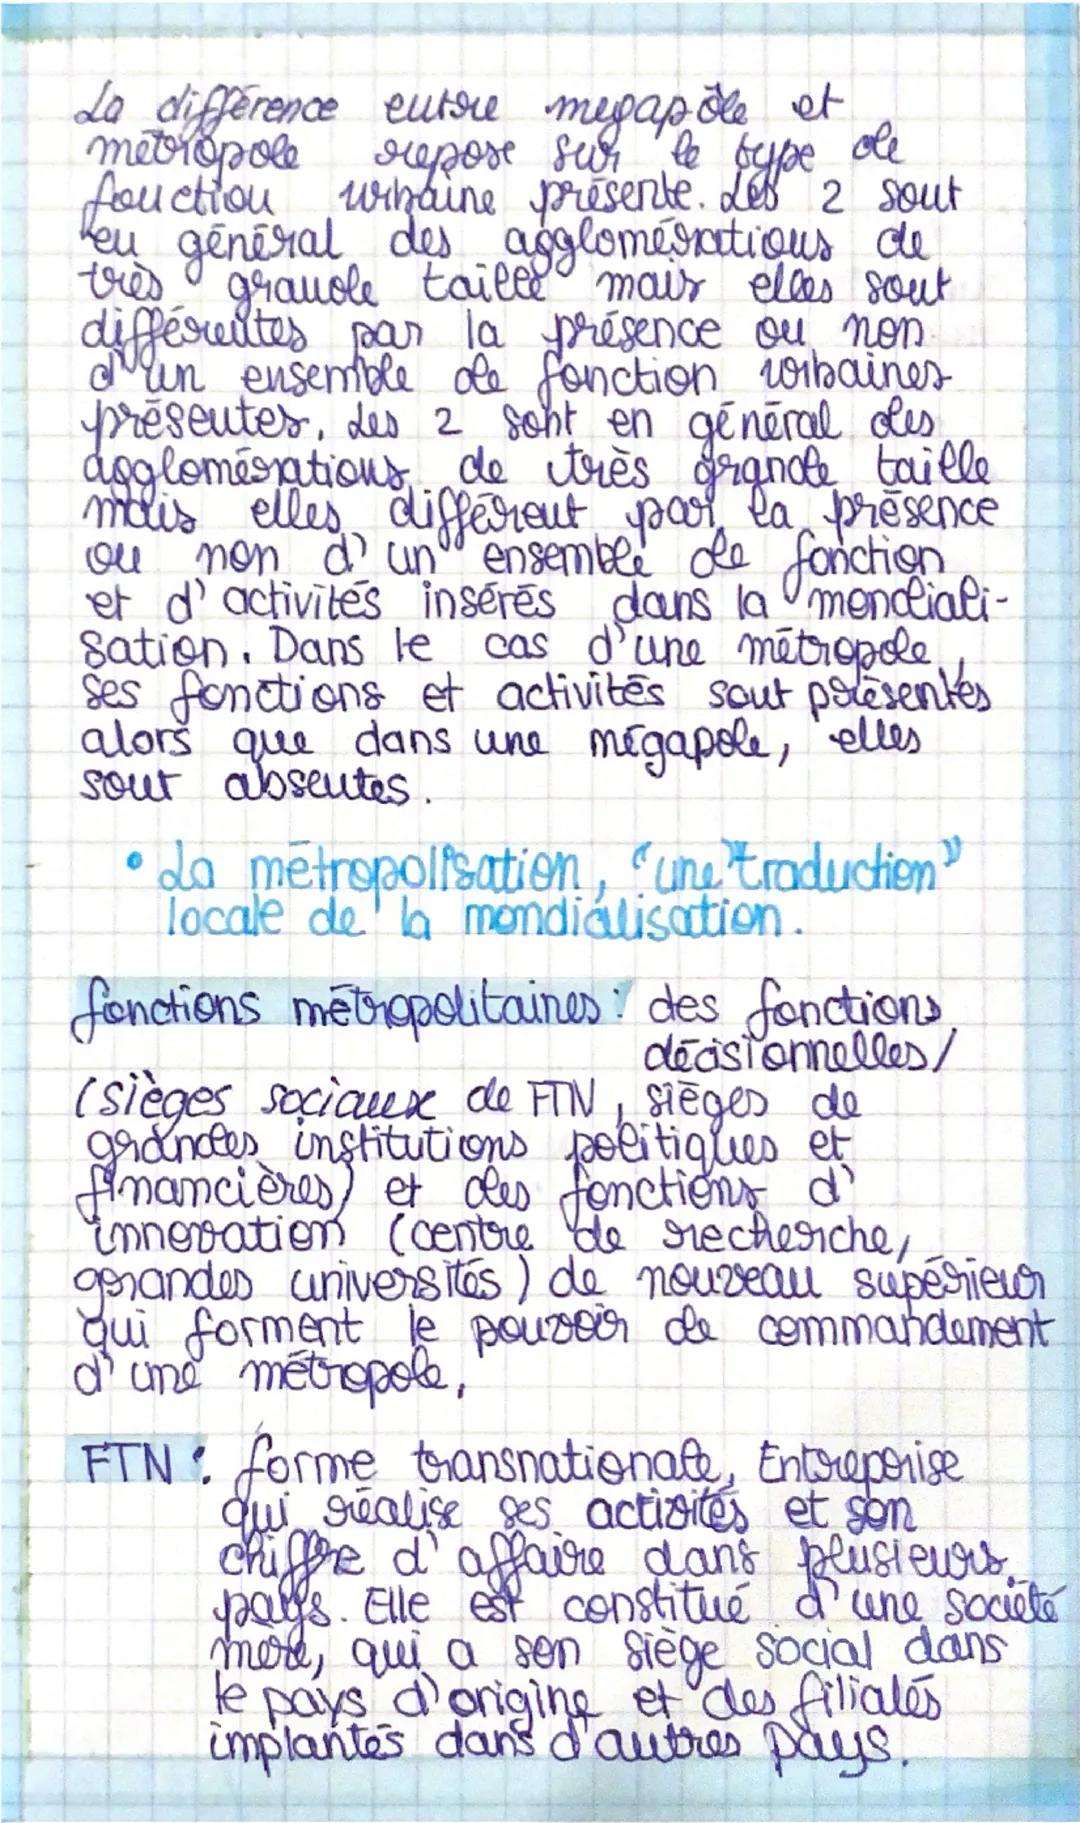 La différence entre megapôle et
métropole repose sur le type de
fonction urbaine présente. Les 2 sont
en général des agglomérations de
très grande taille mais elles sont
différentes par la présence ou non
d'un ensemble de fonction urbaines
présentes. Les 2 sont en général des
agglomérations de très grande taille
mais elles diffèrent par la présence
ou non d'un ensemble de fonction
et d'activités insérés dans la mondiali-
sation. Dans le cas d'une métropole,
ses fonctions et activités sont présentes
alors que dans une mégapole, elles
sont absentes.
• La métropolisation, "une "traduction"
locale de la mondialisation.
fonctions métropolitaines : des fonctions
décisionnelles/
(sièges sociaux de FTN, sièges de
grandes institutions politiques et
financières) et des fonctions d'
innovation (centre de recherche,
grandes universités) de nouveau supérieur
qui forment le pouvoir de commandement
d'une métropole.
FTN : forme transnationale, Entreprise
qui réalise ses activités et son
chiffre d'affaire dans plusieurs
pays. Elle est constitué d'une société
mere, qui a son siège social dans
le pays d'origine et des filiales
implantés dans d'autres pays.